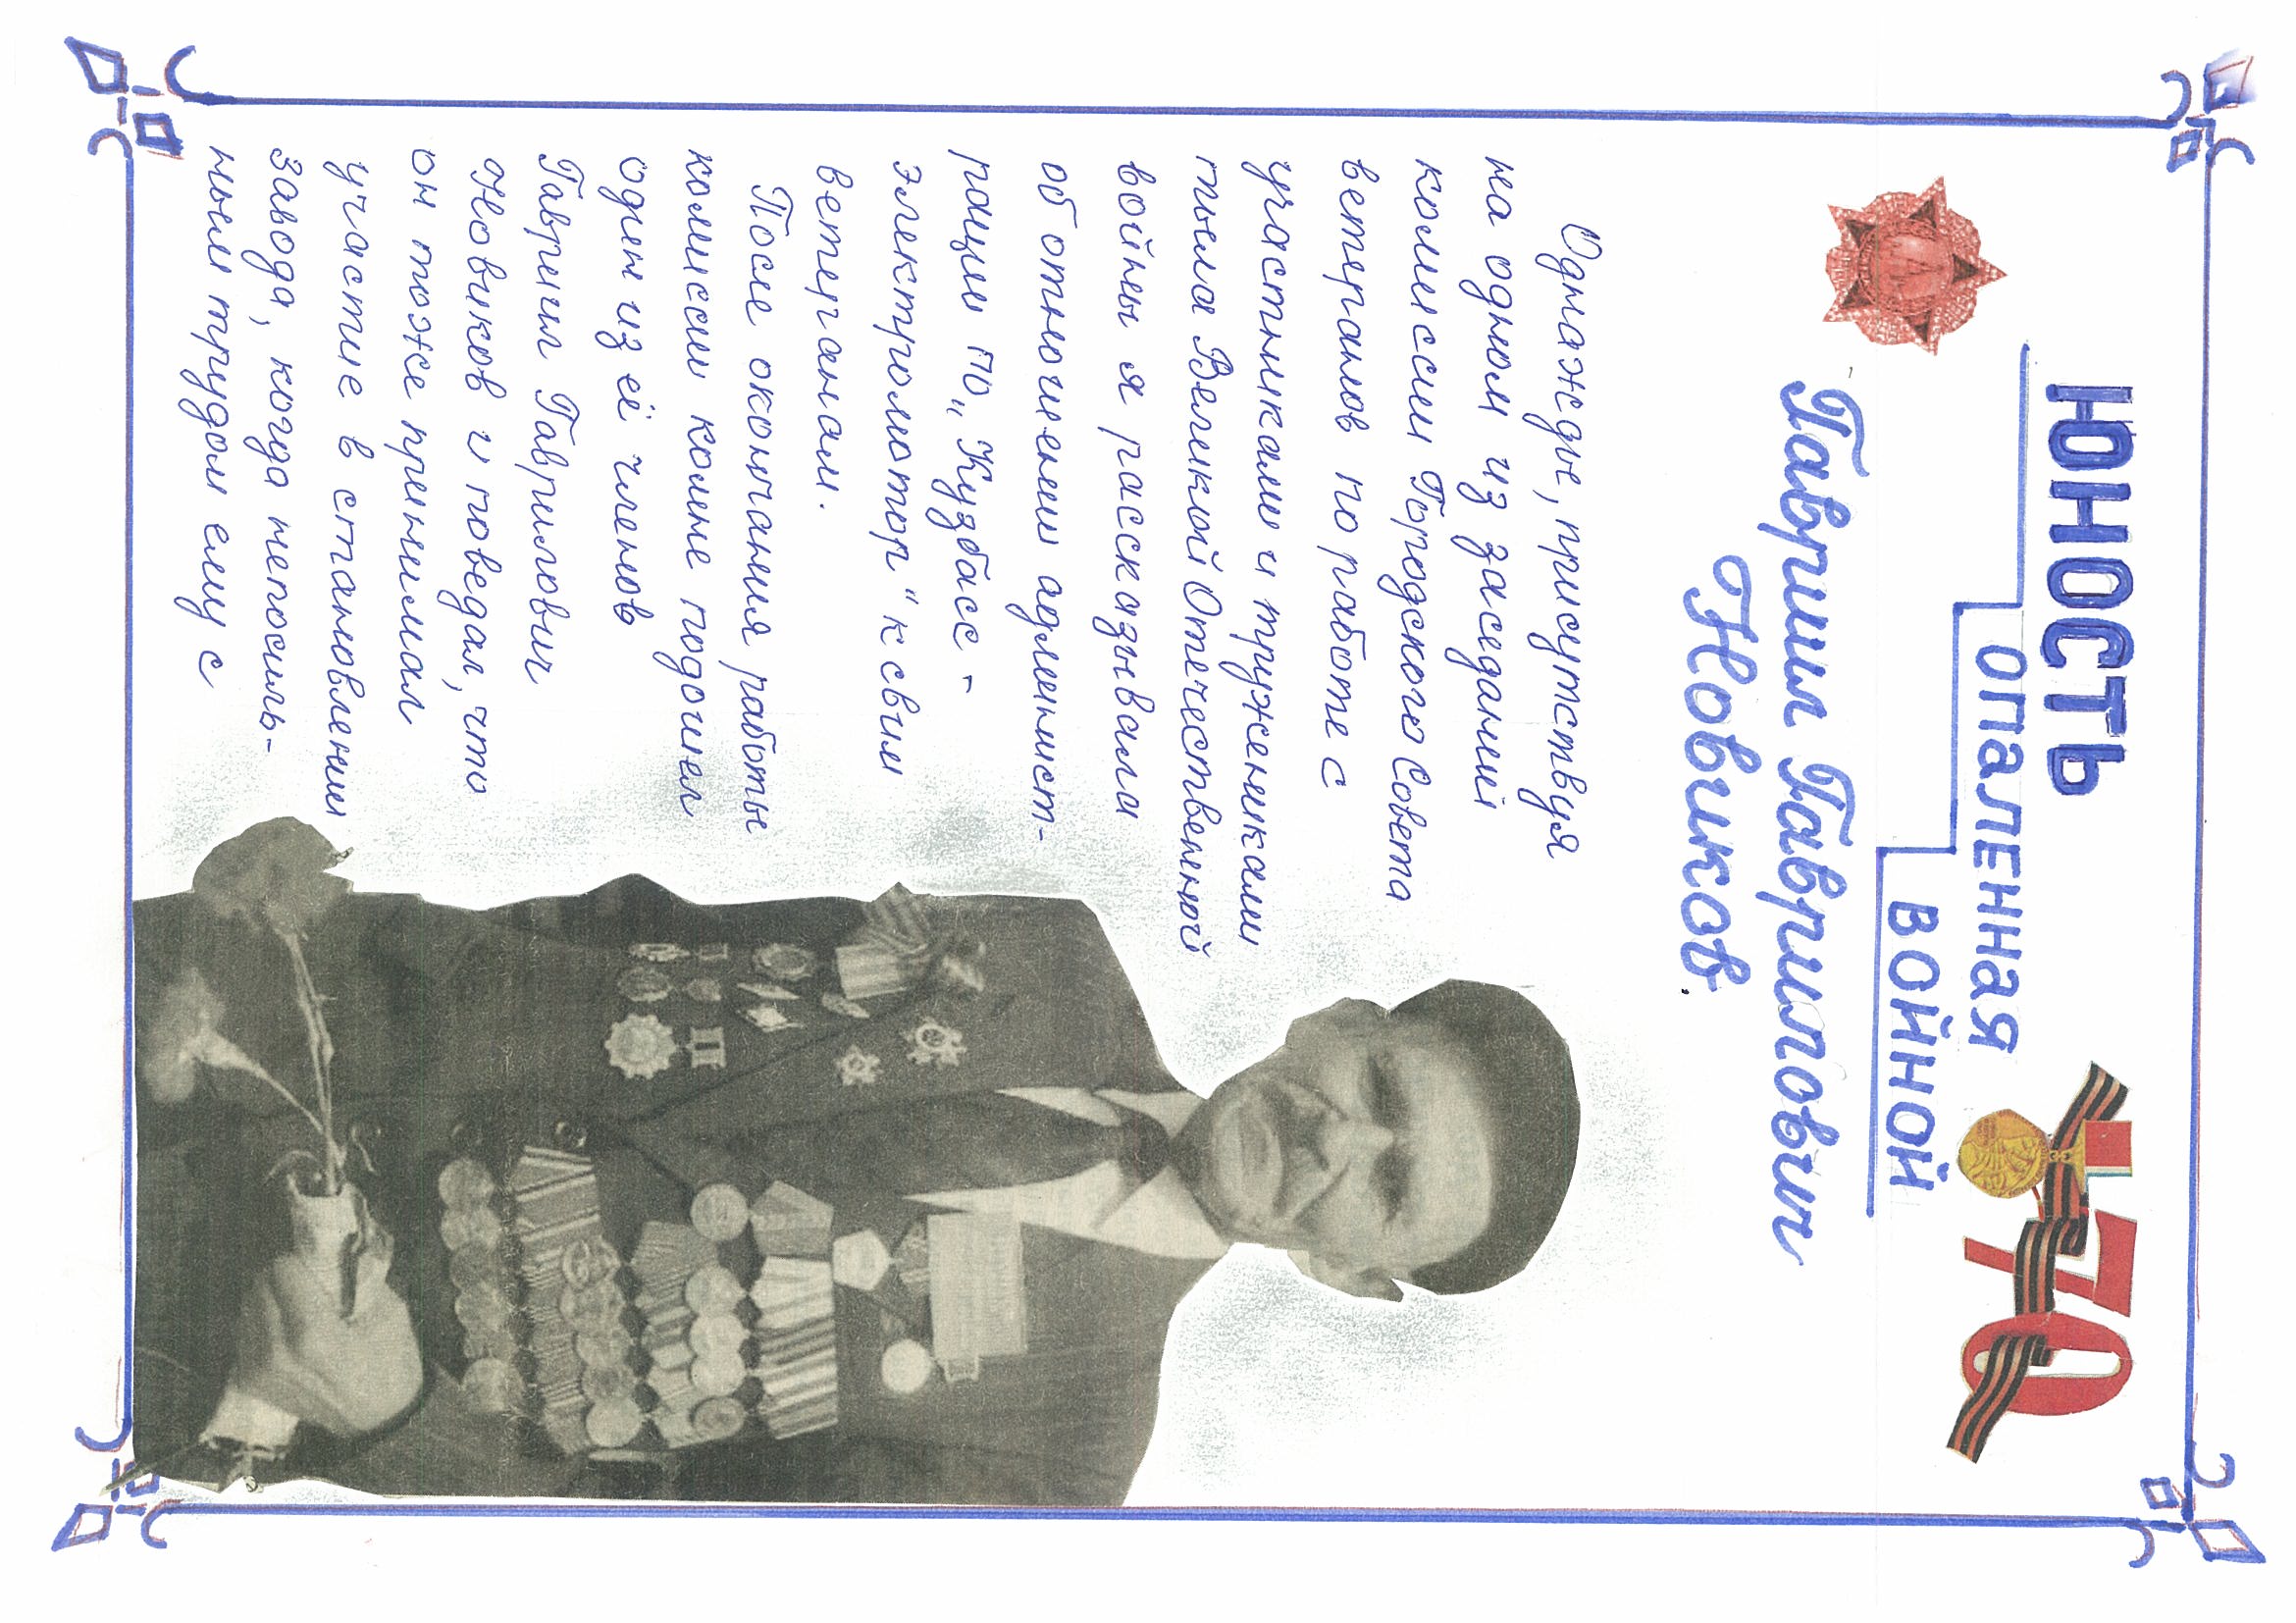 ЮНОСТЬ
ОПАЛЕННАЯ
ВОЙНОЙ
70
Гавриил Гаврилович
Новиков.
Однажды, присутствуя
на одном из заседаний
комиссии Городского Совета
ветеранов по работе с
участниками и тружениками
тыла Великой Отечественной
войны я рассказывала
об отношении админист-
рации по „Кузбасс -
электромотор" к свим
ветеранам.
После окончания работы
комиссии комне подошел
один из её членов
Гавриил Гаврилович
Новиков и поведал, что
он тоже принимал
участие в становлении
завода, когда непосиль-
ным трудом ему с